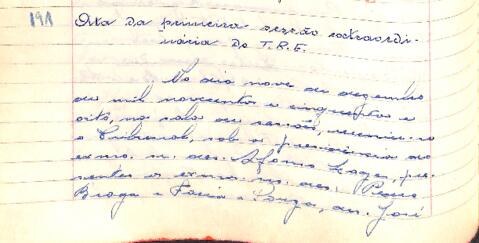 191 Ata da primeira sessão extraordi-
nária do T.R.E.
No dia nove de dezembro
de mil novecentos e cinquenta e
oito, na sala de sessões, reuniu-se
o Tribunal, sob a presidência do
exmo. sr. des. Afonso Lages, pre-
sentes os exmos. srs. des. Pedro
Braga e Faria e Souza, drs. José